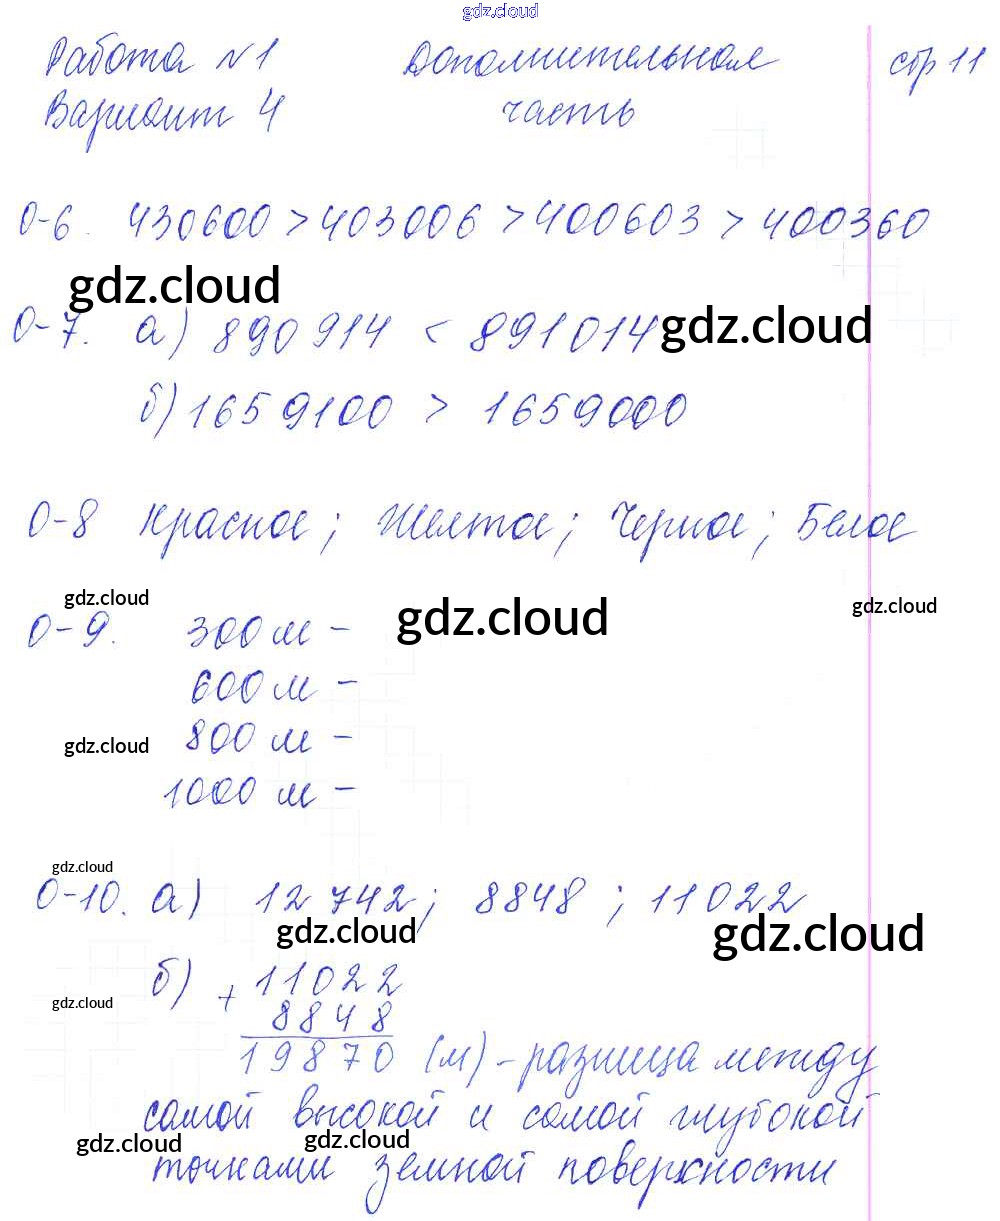 gdz.cloud
Работа №1 Дополнительная стр 11
Вариант 4 часть
0-6. 430600 > 403006 > 400603 > 400360
gdz.cloud
0-7. а) 890914 < 891014 gdz.cloud
б) 1659100 > 1659000
0-8 Красное; Желтое; Черное; Белое
gdz.cloud gdz.cloud gdz.cloud
0-9. 300 м -
600 м -
gdz.cloud 800 м -
1000 м -
gdz.cloud
0-10. а) 12742; 8848; 11022
gdz.cloud gdz.cloud
б) + 11022
gdz.cloud 8848
19870 (м) - разница между
самой высокой и самой глубокой
gdz.cloud gdz.cloud
точками земной поверхности